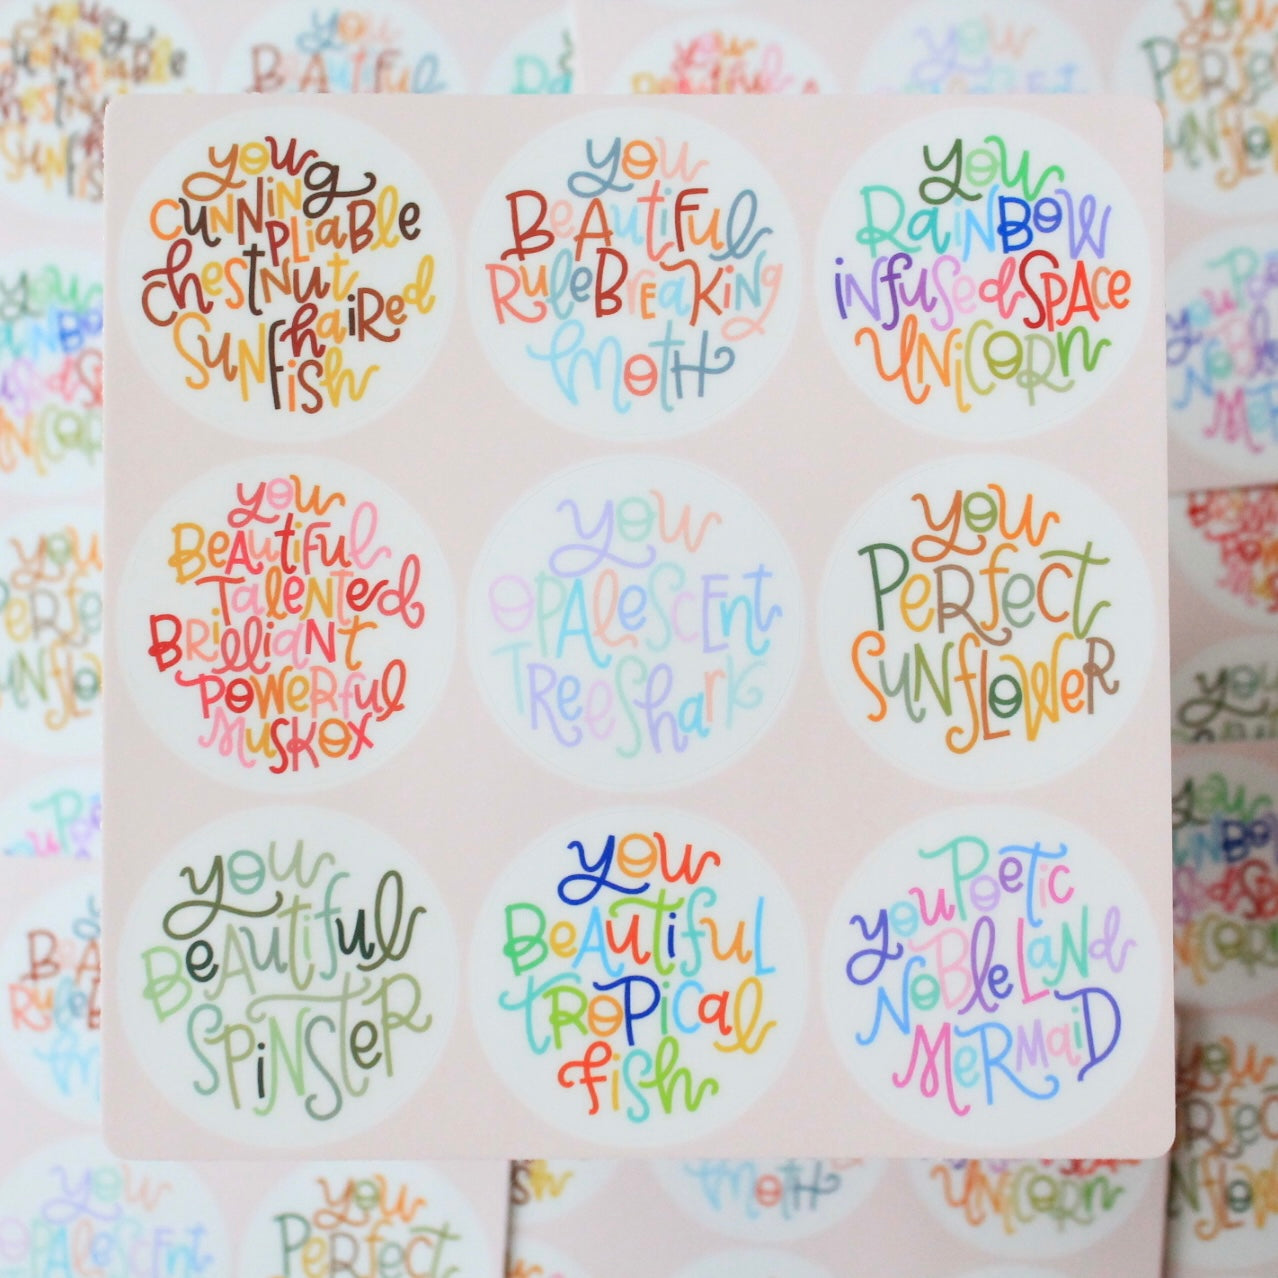 you
CUNNiNg
PLiaBle
chestNut
haiRed
SUNfish
you
BeAutiFul
RuleBrEaKiNg
MotH
you
RaiNBOW
iNfuSedSPAce
UNiCORn
you
BeAutiFul
TaleNted
BRilliaNT
POWeRful
MuskOX
you
OPAleSCENt
TReeShark
you
PERfect
SUNflOWeR
you
BeAutiful
SPiNSteR
you
BeAUTifuL
tROPiCal
fish
you Poetic
NoBle LaNd
MeRmaiD